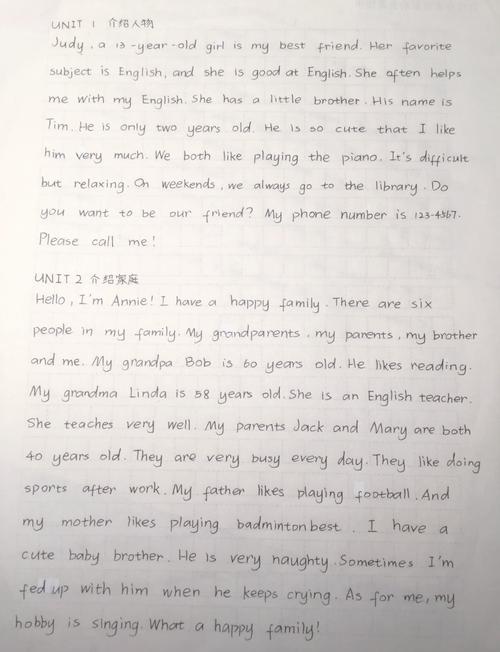 UNIT 1 介绍人物
Judy, a 13-year-old girl is my best friend. Her favorite
subject is English, and she is good at English. She often helps
me with my English. She has a little brother. His name is
Tim. He is only two years old. He is so cute that I like
him very much. We both like playing the piano. It's difficult
but relaxing. On weekends, we always go to the library. Do
you want to be our friend? My phone number is 123-4567.
Please call me!
UNIT 2 介绍家庭
Hello, I'm Annie! I have a happy family. There are six
people in my family. My grandparents, my parents, my brother
and me. My grandpa Bob is 60 years old. He likes reading.
My grandma Linda is 58 years old. She is an English teacher.
She teaches very well. My parents Jack and Mary are both
40 years old. They are very busy every day. They like doing
sports after work. My father likes playing football. And
my mother likes playing badminton best. I have a
cute baby brother. He is very naughty. Sometimes I'm
fed up with him when he keeps crying. As for me, my
hobby is singing. What a happy family!